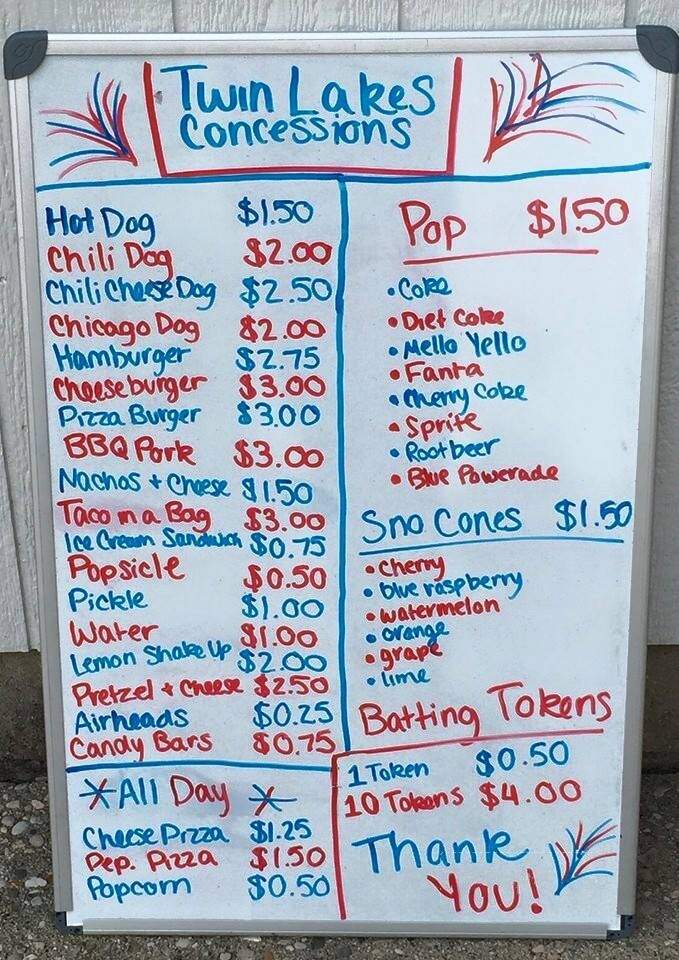 Twin Lakes
Concessions
Hot Dog $1.50
Chili Dog $2.00
Chili Cheese Dog $2.50
Chicago Dog $2.00
Hamburger $2.75
Cheeseburger $3.00
Pizza Burger $3.00
BBQ Pork $3.00
Nachos + Cheese $1.50
Taco in a Bag $3.00
Ice Cream Sandwich $0.75
Popsicle $0.50
Pickle $1.00
Water $1.00
Lemon Shake Up $2.00
Pretzel + Cheese $2.50
Airheads $0.25
Candy Bars $0.75
All Day
Cheese Pizza $1.25
Pep. Pizza $1.50
Popcorn $0.50
Pop $1.50
• Coke
• Diet Coke
• Mello Yello
• Fanta
• Cherry Coke
• Sprite
• Rootbeer
• Blue Powerade
Sno Cones $1.50
• Cherry
• blue raspberry
• watermelon
• orange
• grape
• lime
Batting Tokens
1 Token $0.50
10 Tokens $4.00
Thank
You!